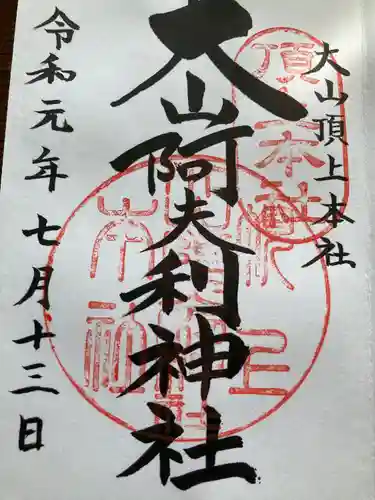 大山頂上本社
大山阿夫利神社
令和元年七月十三日
頂上本社